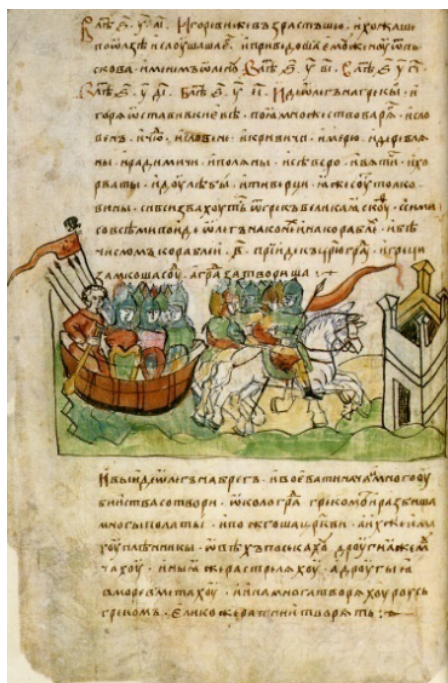 В лѣт ҂ѕ҃ у҃ аı҃. Игореви же възрастъшю. и хожаше
по ѡлзѣ и слоушаше и приведоша емоу женоу ѿ пь
скова. именемъ ѡленоу В лѣт ҂ѕ҃ у҃ вı҃. В лѣт ҂ѕ҃ у҃ гı҃
В лѣт ҂ѕ҃ у҃ дı҃. В лѣт ҂ѕ҃ у҃ еı҃. Иде ѡлегъ на грекы. и
горѧ ѡстави в киевѣ. поѧ множество варѧ. и сло
венъ. и чю. и словене. и кривичи. и мерю. и деревлѧ
ны. и радимичи. и полѧны. и севѣро. и вѧтичи. и хо
рваты. и доулѣбы. и тиверци. ꙗже соу толко
вины. си вси звахоуть ѿ грекъ великаѧ скоу. с сими
со всѣми поиде ѡлегъ на коне и на корабле. и бѣ
числомъ кораблей. ҂в҃. и прииде къ црюгра. и греци
замкоша соу. а гра затвориша.
И выиде ѡлегъ на брегъ. и воевати нача. и много оу
бииства сотвори. ѡколо гра греком. и разбиша
многы полаты. и пожгоша црькви. а их же има
хоу плѣнникы. ѡвѣхъ посѣкахоу. дроугиа же моу
чахоу. иныѧ же растрелѧхоу. а дроугыѧ
в море вметахоу. и ина многа творѧхоу роусь
грекомъ. елико же ратнии творѧть.